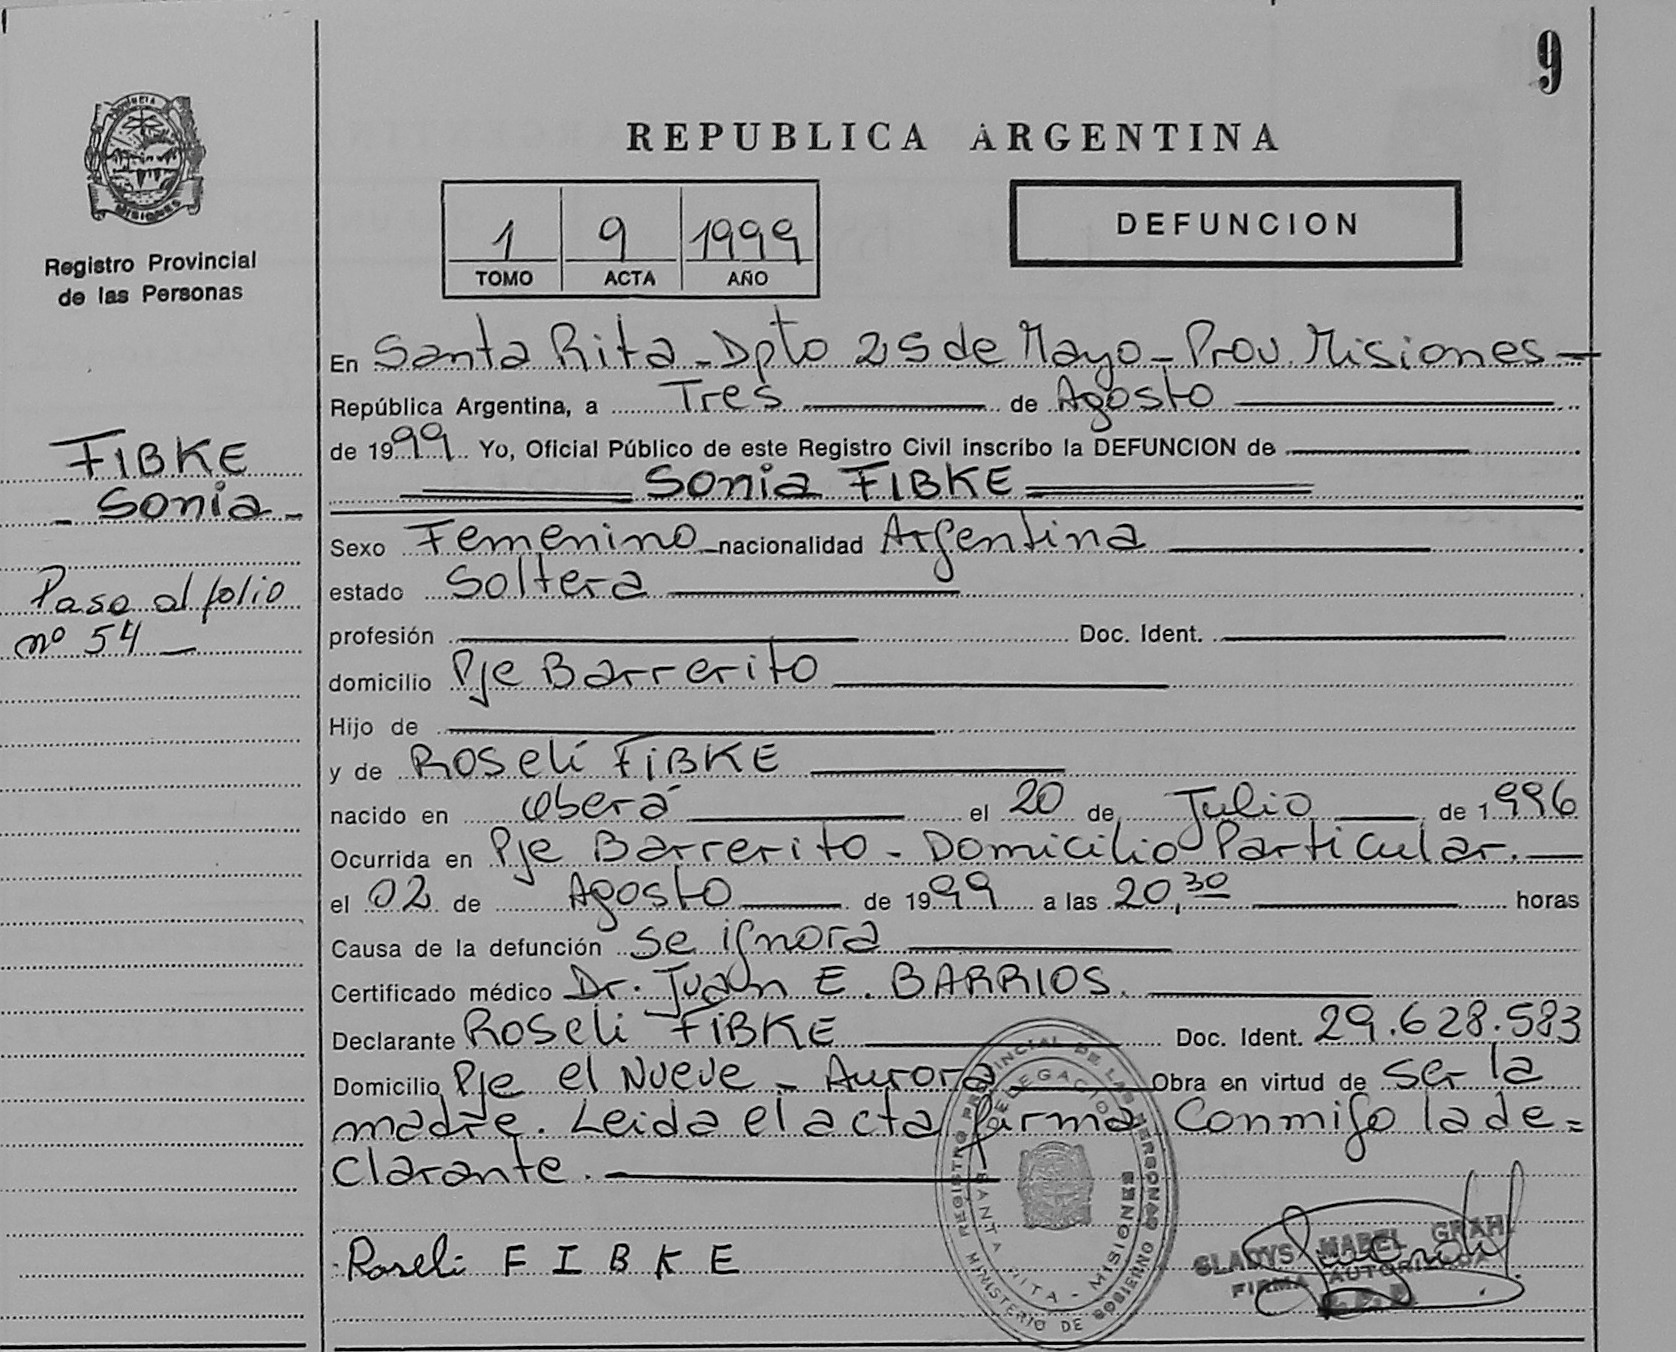 9
PROVINCIA
MISIONES
Registro Provincial
de las Personas
REPUBLICA ARGENTINA
1 9 1999
TOMO ACTA AÑO
DEFUNCION
En Santa Rita - Dpto 25 de Mayo - Prov. Misiones -
República Argentina, a Tres de Agosto
de 1999 Yo, Oficial Público de este Registro Civil inscribo la DEFUNCION de
Sonia FIBKE
FIBKE
- Sonia -
Pasa al folio
nº 54
Sexo Femenino nacionalidad Argentina
estado Soltera
profesión Doc. Ident.
domicilio Pje Barrerito
Hijo de
y de Roseli FIBKE
nacido en Oberá el 20 de Julio de 1996
Ocurrida en Pje Barrerito - Domicilio Particular.
el 02 de Agosto de 1999 a las 20,30 horas
Causa de la defunción se ignora
Certificado médico Dr. Juan E. BARRIOS.
Declarante Roseli FIBKE Doc. Ident. 29.628.583
Domicilio Pje el Nueve - Aurora Obra en virtud de ser la
madre. Leida el acta firma Conmigo la de=
clarante.
Roseli FIBKE
REGISTRO PROVINCIAL DE LAS PERSONAS
MINISTERIO DE GOBIERNO
DELEGACION
SANTA RITA - MISIONES
GLADYS MABEL GRAHL
FIRMA AUTORIZADA